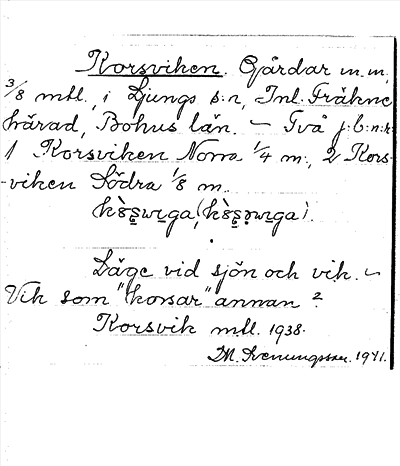 Korsviken. Gårdar m. m,
3/8 mtl. i Ljungs s:n, Inl. Fräkne
härad, Bohus län. – Två j:b:n:r
1 Korsviken Norra 1/4 m:, 2 Kors-
-viken Södra 1/8 m.
Läge vid sjön och vik. –
Vik som "korsar" annan?
Korsvik mtl. 1938.
M. Svenungsson. 1941.